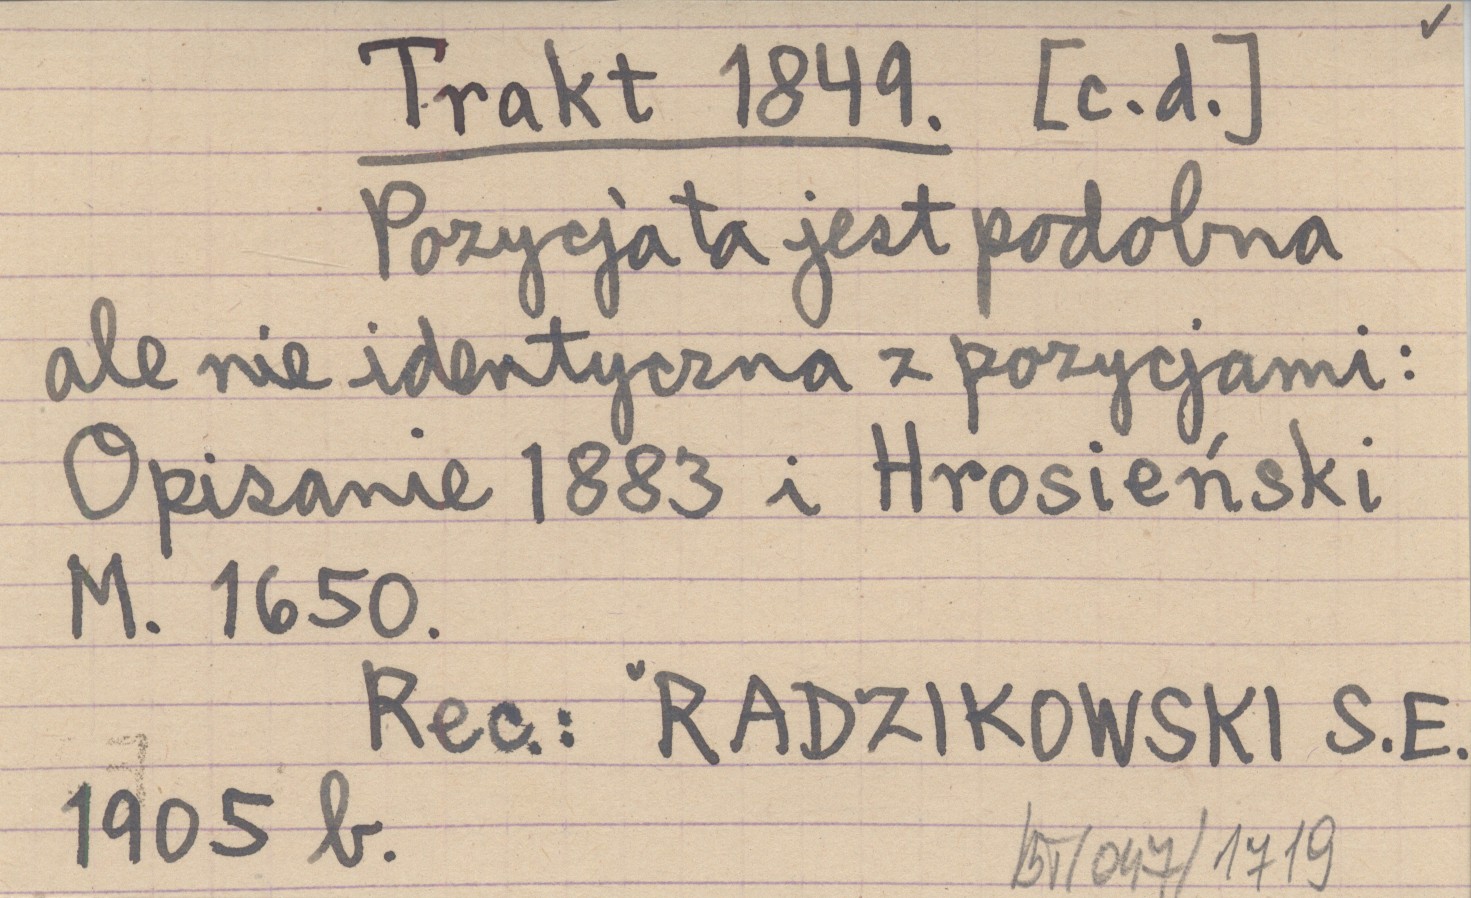 Trakt 1849. [c.d.]
Pozycja ta jest podobna
ale nie identyczna z pozycjami:
Opisanie 1883 i Hrosieński
M. 1650.
Rec.: RADZIKOWSKI S.E.
1905 b.
/047/1719